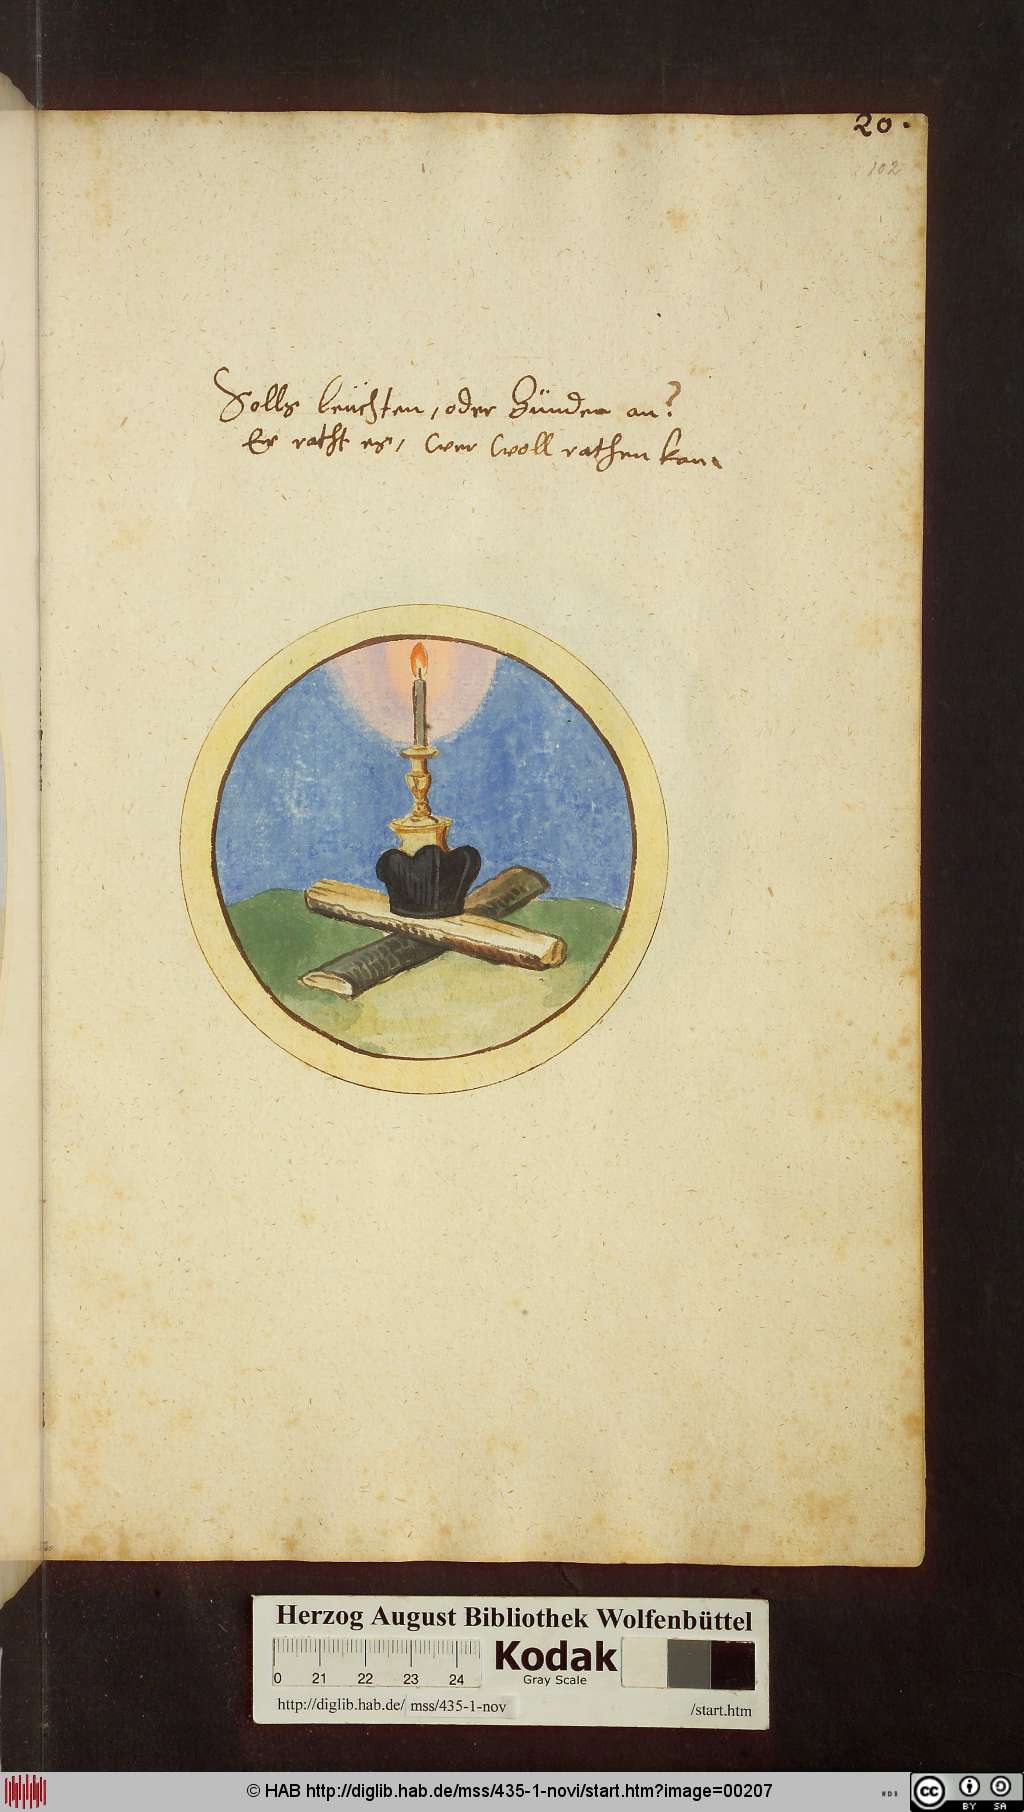 20.
102
Solls leüchten, oder Zünden an?
Er rath es, wer woll rathen kan.
Herzog August Bibliothek Wolfenbüttel
0 21 22 23 24
Kodak
Gray Scale
http://diglib.hab.de/ mss/435-1-nov /start.htm
© HAB http://diglib.hab.de/mss/435-1-novi/start.htm?image=00207
cc BY SA